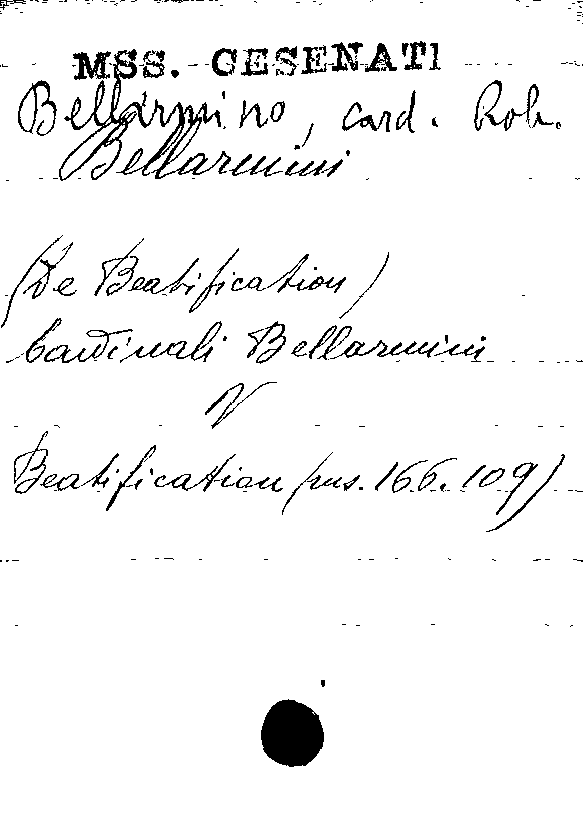 MSS. CESENATI
Bellarmino, card. Rob.
Bellarmini
(De Beatification)
Cardinali Bellarmini
V
Beatification (ms. 166. 109)